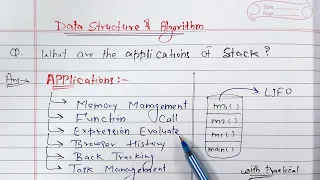 Data Structure & Algorithm
Q. What are the applications of Stack?
Ans→ APPLICATIONS:-
Memory Management
Function Call
Expression Evaluate
Browser History
Back Tracking
Task Management
LIFO
m3()
m2()
m1()
main()
with Practical